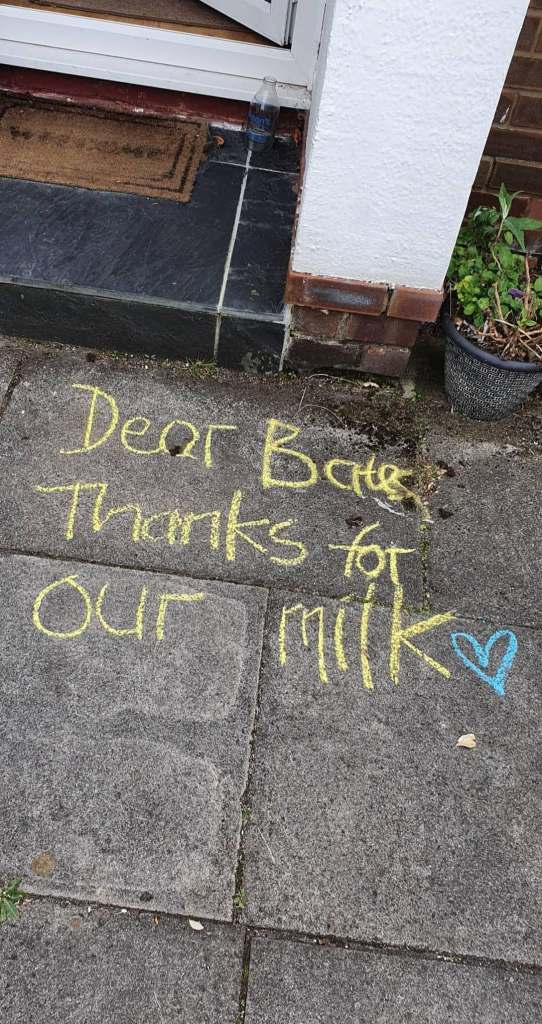 Dear Bates
Thanks for
our milk